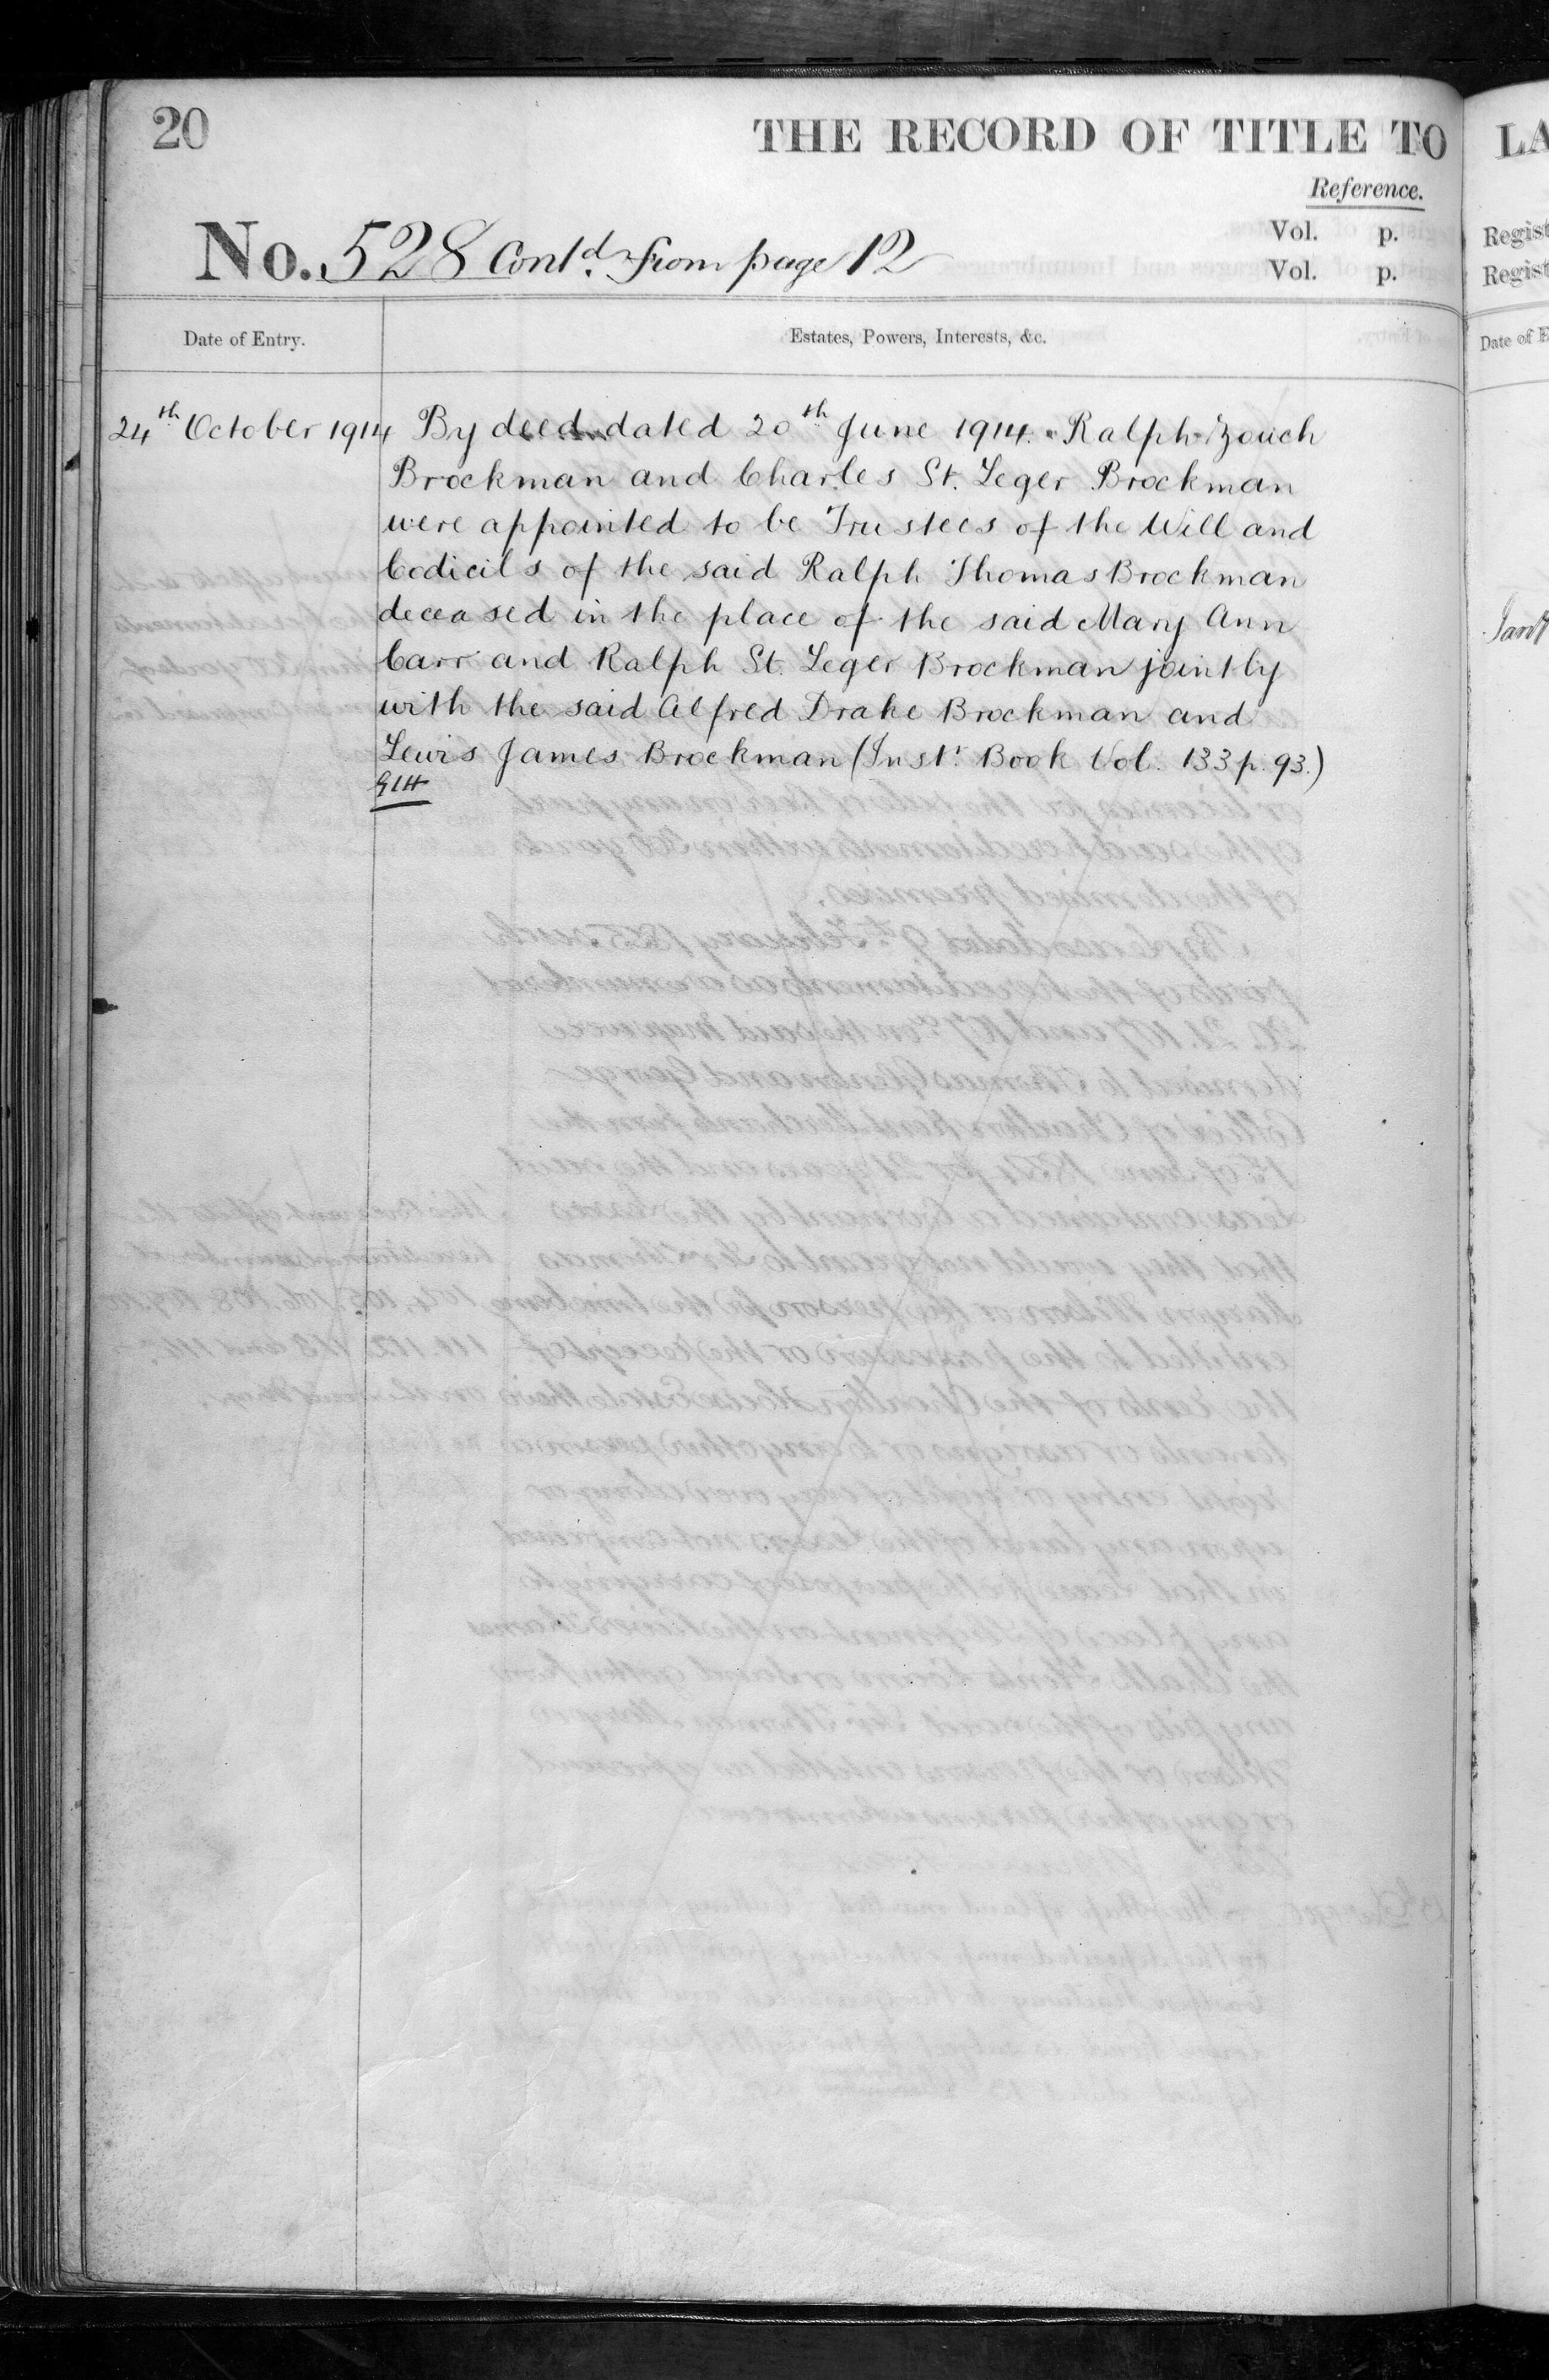 20
THE RECORD OF TITLE TO
LA
Reference.
Vol. p.
Regist
No. 528 Contd. from page 12
Vol. p.
Regist
Date of Entry.
Estates, Powers, Interests, &c.
Date of E
24th October 1914
By deed dated 20th June 1914. Ralph Zouch
Brockman and Charles St. Leger Brockman
were appointed to be Trustees of the Will and
Codicils of the said Ralph Thomas Brockman
deceased in the place of the said Mary Ann
Carr and Ralph St. Leger Brockman jointly
with the said Alfred Drake Brockman and
Lewis James Brockman (Inst. Book Vol. 133 p. 93.)